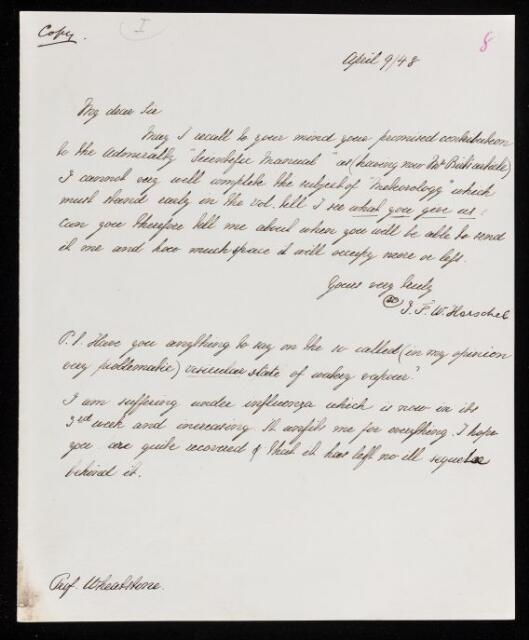 Copy.
I
8
April 9/48
My dear Sir
May I recall to your mind your promised contribution
to the Admiralty "Scientific Manual" as (having now Dr Birt's article)
I cannot very well complete the subject of "Meteorology" which
must stand early in the vol. till I see what you give us:
can you therefore tell me about when you will be able to send
it me and how much space it will occupy more or less.
Yours very truly
J. F. W. Herschel
P.S. Have you anything to say on the so called (in my opinion
very problematic) vesicular state of watery vapour?
I am suffering under influenza which is now in its
3rd week and increasing. It unfits me for everything. I hope
you are quite recovered & that it has left no ill sequelae
behind it.
Prof. Wheatstone.